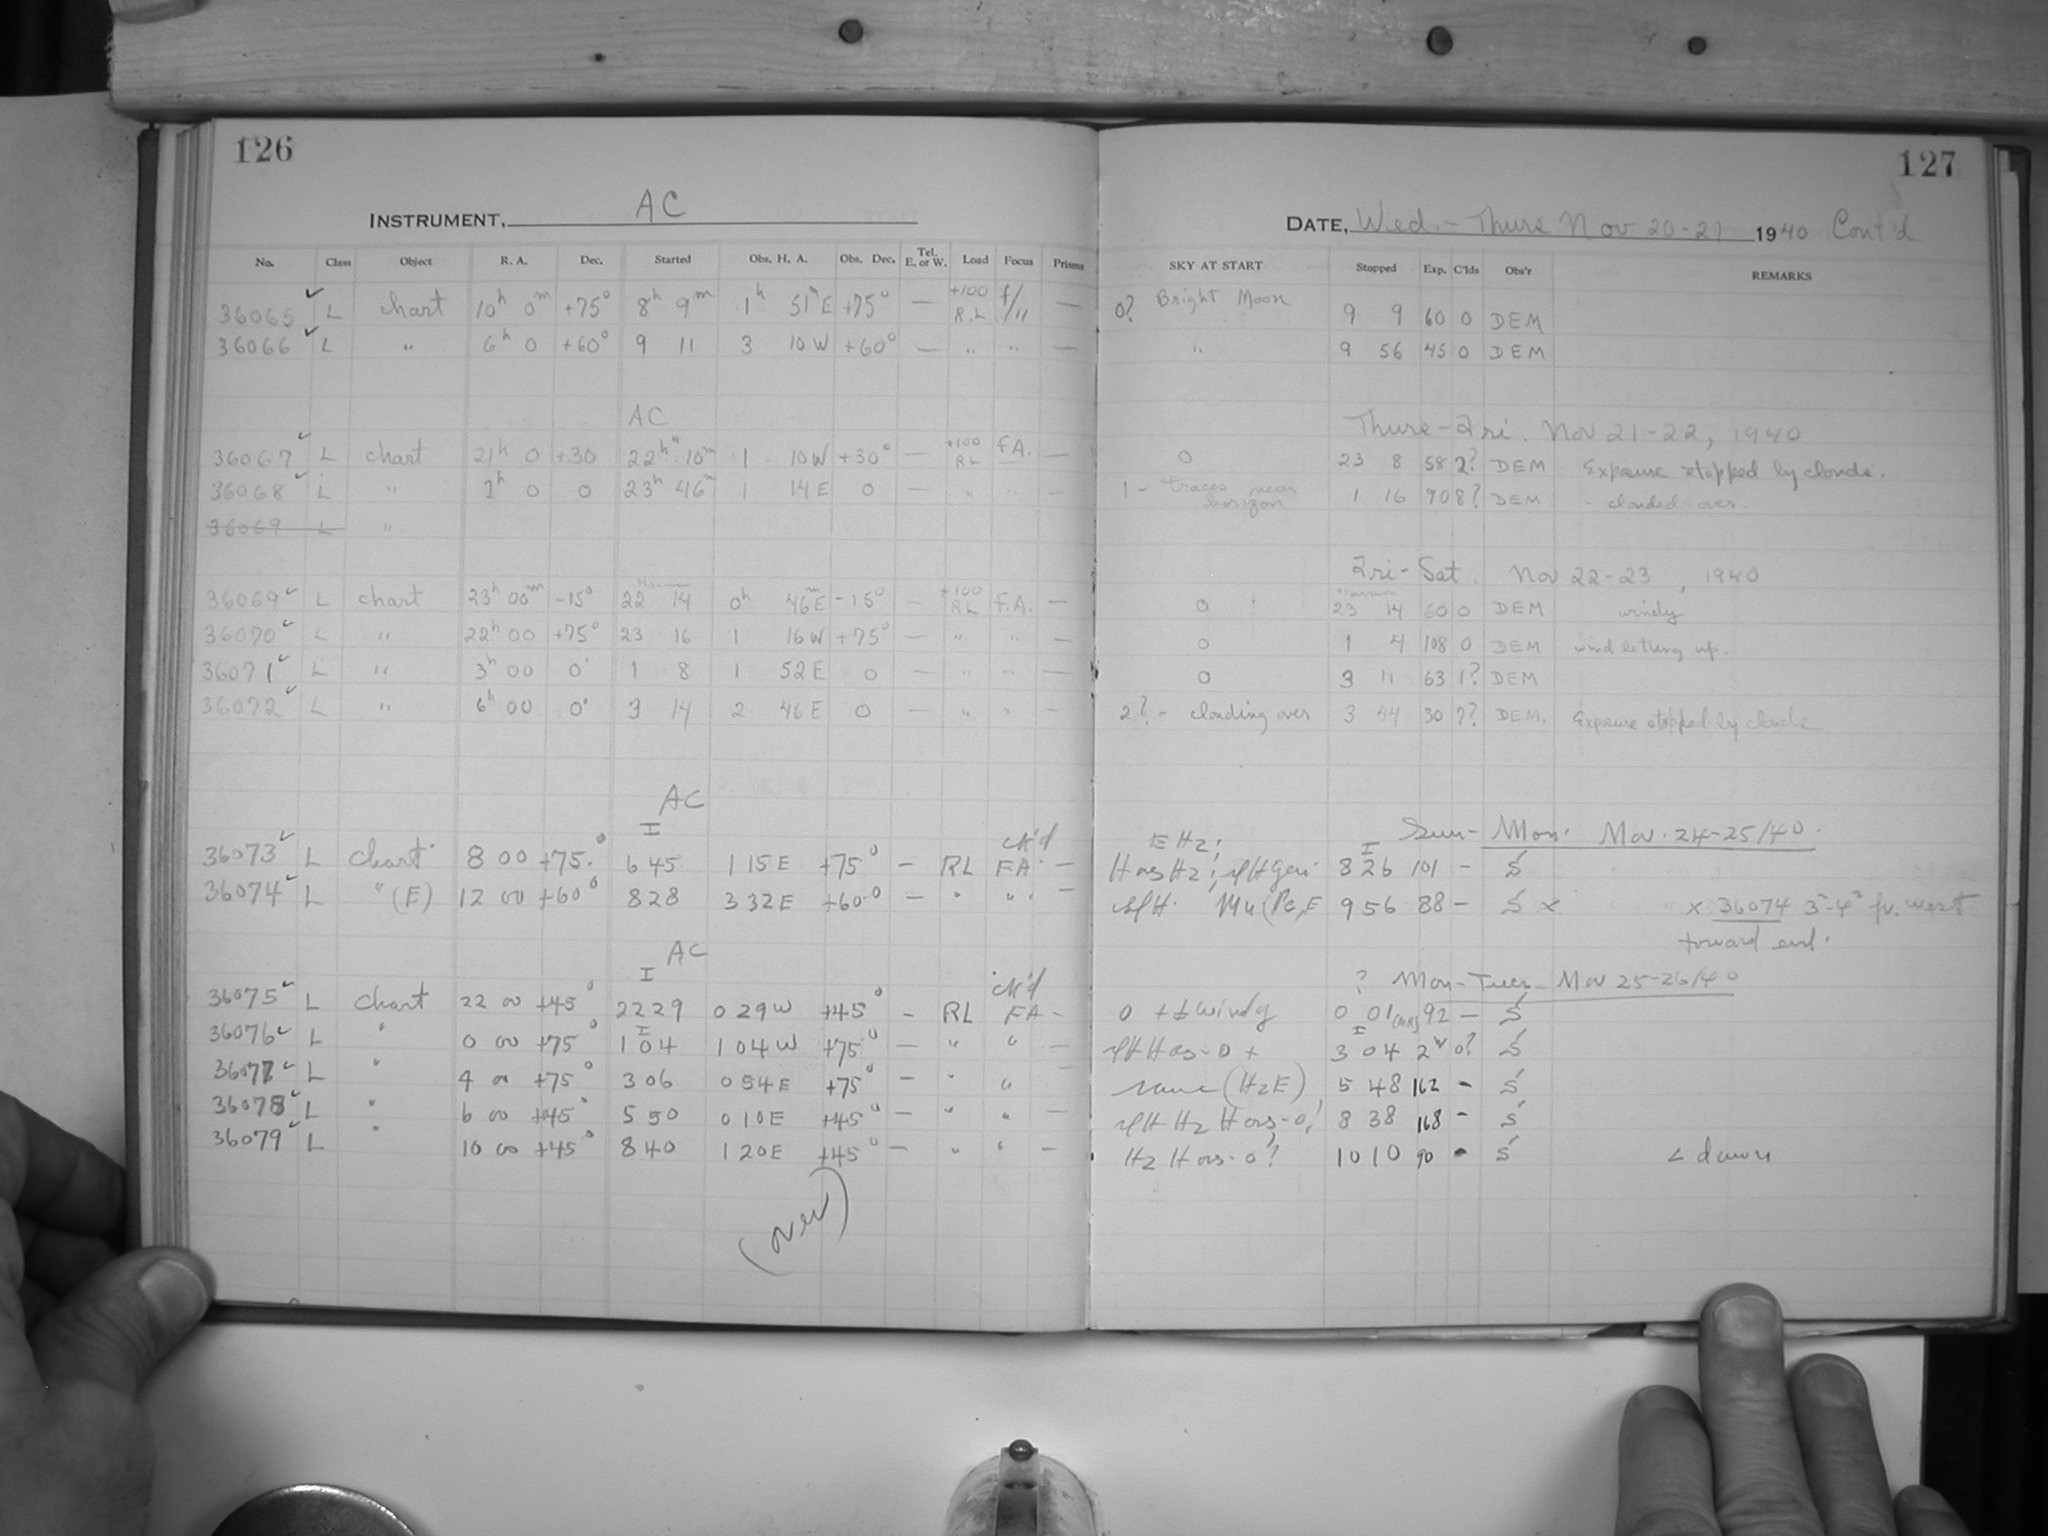 126
INSTRUMENT, AC
No. Class Object R. A. Dec. Started Obs. H. A. Obs. Dec. Tel. E. or W. Load Focus Prisms
36065 ✓ L chart 10h 0m +75° 8h 9m 1h 51m E +75° — +100 R.L f/11 —
36066 ✓ L " 6h 0 +60° 9 11 3 10 W +60° — " " —
AC
36067 ✓ L chart 21h 0 +30 22h 10m 1 10 W +30° — +100 RL F.A. —
36068 ✓ L " 1h 0 0 23h 46m 1 14 E 0 — " " -
36069 L "
36069 ✓ L chart 23h 00m -15° 22 14 0h 46m E -15° — +100 RL F.A. —
36070 ✓ L " 22h 00 +75° 23 16 1 16 W +75° — " " —
36071 ✓ L " 3h 00 0° 1 8 1 52 E 0 — " " —
36072 ✓ L " 6h 00 0° 3 14 2 46 E 0 — " " —
AC
36073 ✓ L Chart 8 00 +75.° 6 45 1 15 E +75° — RL ck'd FA —
36074 ✓ L " (E) 12 00 +60° 8 28 3 32 E +60° — " " —
AC
36075 ✓ L Chart 22 00 +45° 22 29 0 29 W +45° — RL ck'd FA -
36076 ✓ L " 0 00 +75° 1 04 1 04 W +75° — " " —
36077 ✓ L " 4 00 +75° 3 06 0 54 E +75° — " "
36078 ✓ L " 6 00 +45° 5 50 0 10 E +45° — " " —
36079 ✓ L " 10 00 +45° 8 40 1 20 E +45° — " " —
(over)
127
DATE, Wed. - Thurs Nov 20-21 1940 Cont'd
SKY AT START Stopped Exp. C'lds Obs'r REMARKS
0? Bright Moon 9 9 60 0 DEM
" 9 56 45 0 DEM
Thurs - Fri. Nov 21-22, 1940
0 23 8 58 2? DEM Exposure stopped by clouds.
1 - traces near horizon 1 16 90 8? DEM - clouded over.
Fri - Sat. Nov 22-23, 1940
0 23 14 60 0 DEM windy
0 1 4 108 0 DEM wind letting up.
0 3 11 63 1? DEM
2? - clouding over 3 44 30 7? DEM. Exposure stopped by clouds
Sun - Mon. Nov. 24-25/40.
E Hz;
8 26 101 - S
9 56 88 - S x x 36074 fr. west
toward end.
? Mon - Tues - Nov 25-26/40
windy 0 01 92 - S
3 04 0? S
same (HzE) 5 48 162 - S
8 38 168 - S
10 10 90 - S < dawn